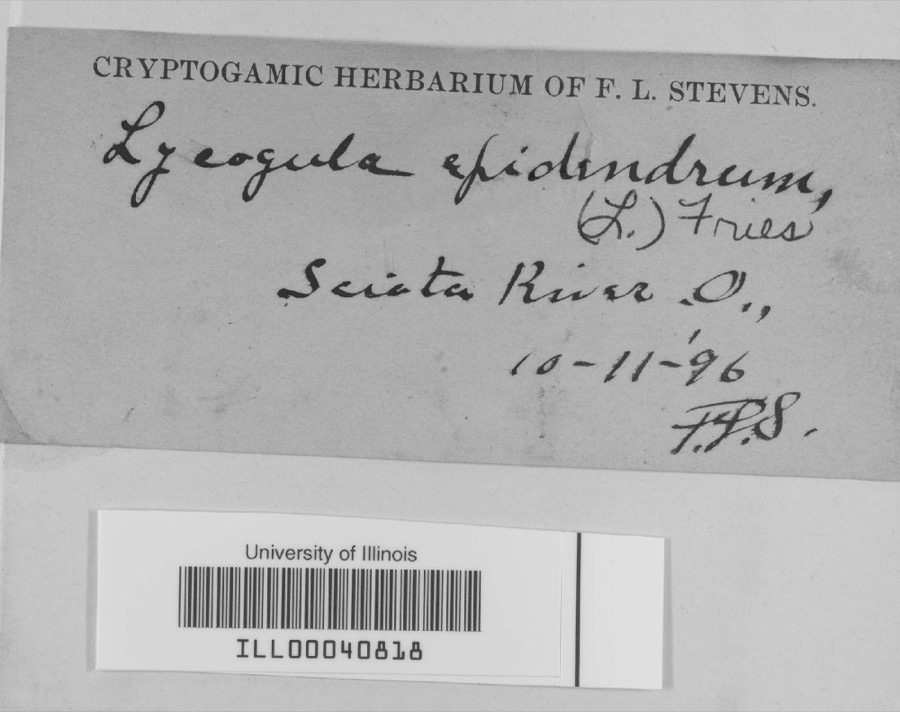 CRYPTOGAMIC HERBARIUM OF F. L. STEVENS.
Lycogula epidendrum,
(L.) Fries
Sciota River O.,
10-11-'96
F.L.S.
University of Illinois
ILL00040818